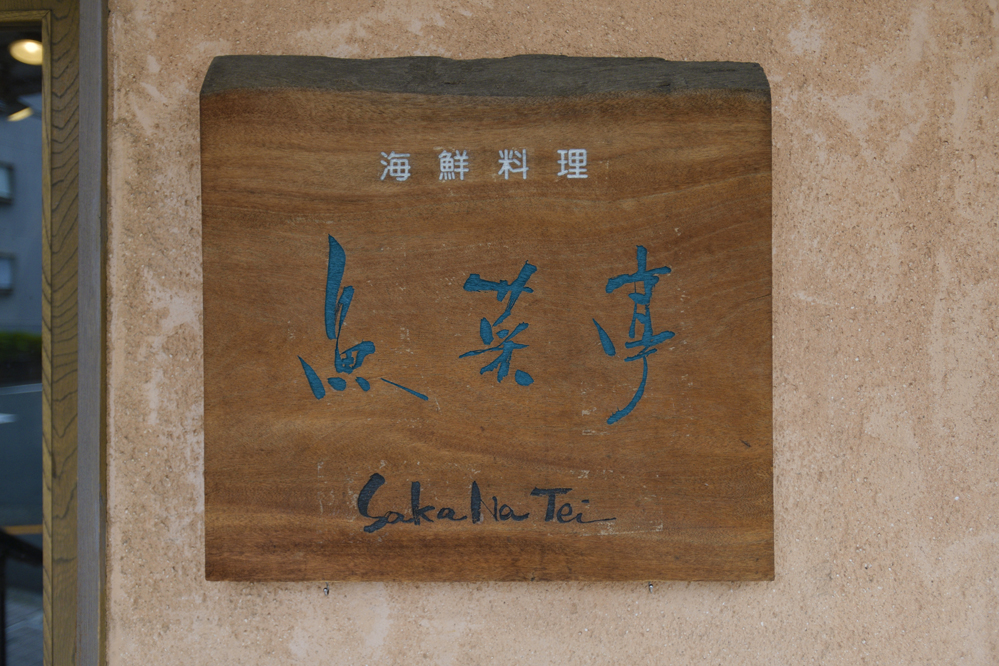 海鮮料理
魚菜亭
SakaNaTei